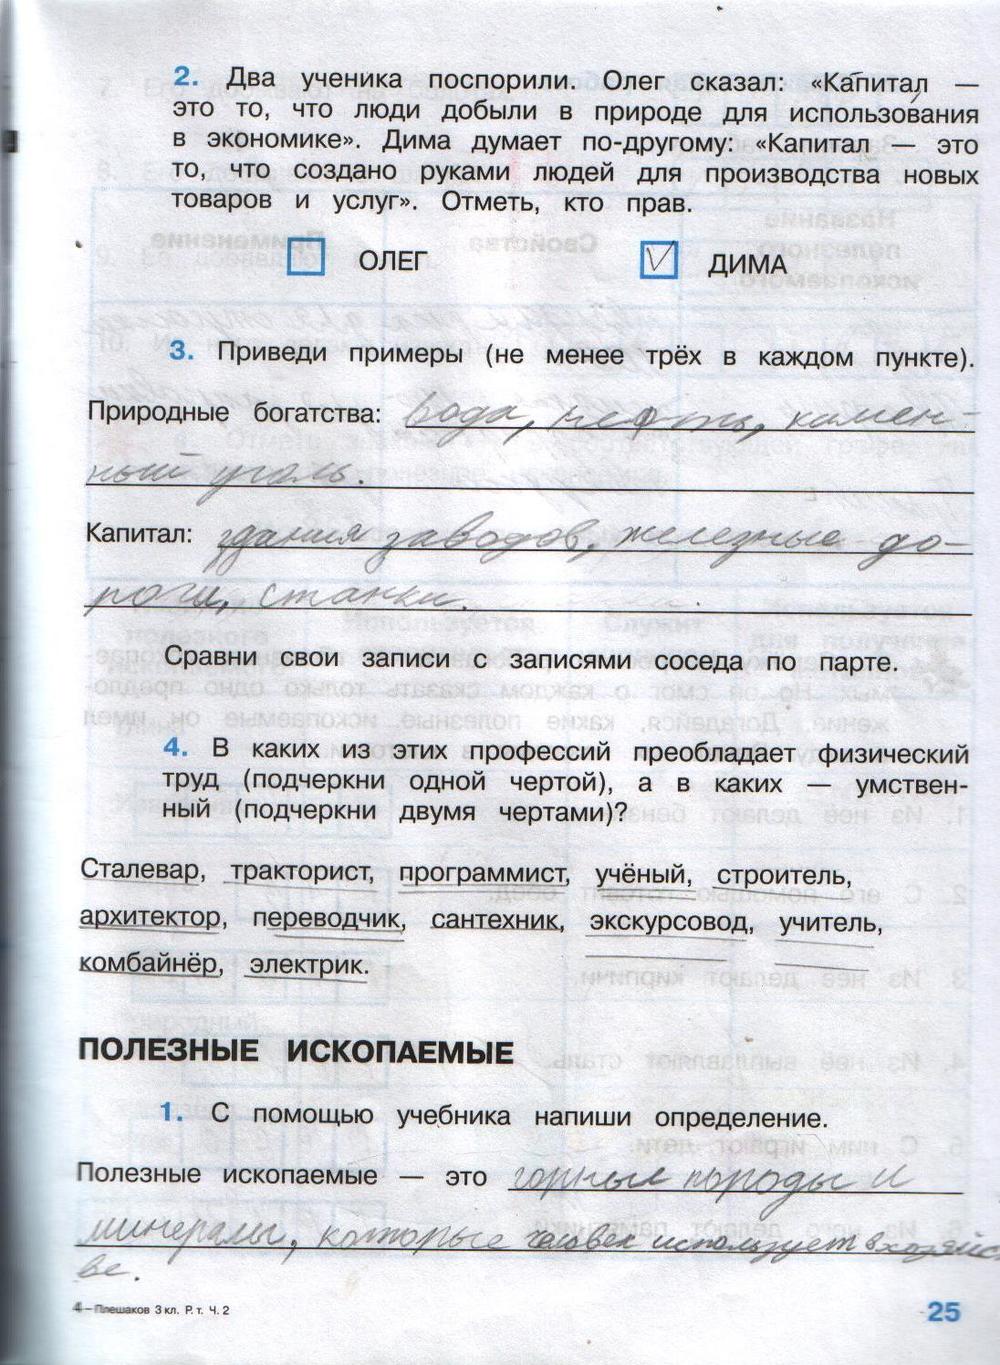 2. Два ученика поспорили. Олег сказал: «Капитал —
это то, что люди добыли в природе для использования
в экономике». Дима думает по-другому: «Капитал — это
то, что создано руками людей для производства новых
товаров и услуг». Отметь, кто прав.
ОЛЕГ ДИМА
3. Приведи примеры (не менее трёх в каждом пункте).
Природные богатства: вода, нефть, камен-
ный уголь.
Капитал: здания заводов, железные до-
роги, станки.
Сравни свои записи с записями соседа по парте.
4. В каких из этих профессий преобладает физический
труд (подчеркни одной чертой), а в каких — умствен-
ный (подчеркни двумя чертами)?
Сталевар, тракторист, программист, учёный, строитель,
архитектор, переводчик, сантехник, экскурсовод, учитель,
комбайнёр, электрик.
ПОЛЕЗНЫЕ ИСКОПАЕМЫЕ
1. С помощью учебника напиши определение.
Полезные ископаемые — это горные породы и
минералы, которые человек использует в хозяйст
ве.
4—Плешаков 3 кл. Р. т. Ч. 2
25